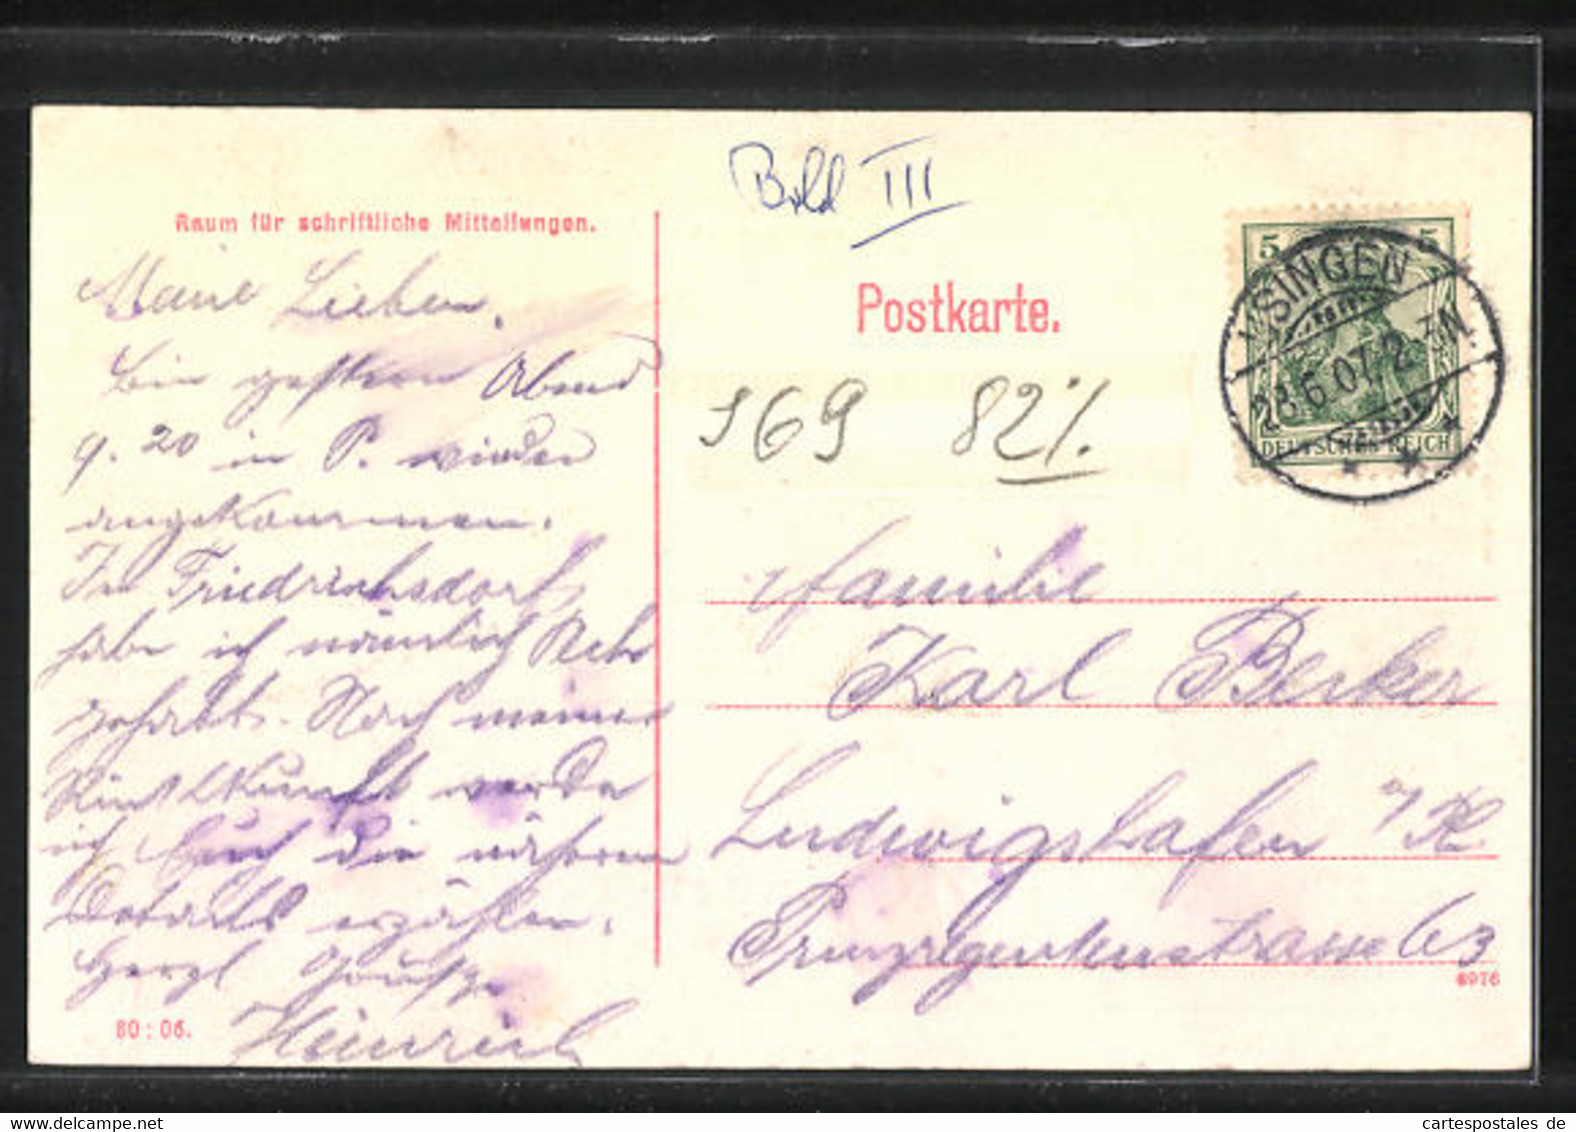 Bild III
Raum für schriftliche Mitteilungen.
Postkarte.
5 5
USINGEN
28.6.07. 2-3N.
DEUTSCHES REICH
Meine Lieben,
bin gestern Abend
9.20 in P. wieder
angekommen.
In Friedrichsdorf
habe ich nämlich
gehabt. Nach meiner
werde
ich Euch die näheren
Details erzählen.
Herzl Grüsse
Heinrich
80:06.
569 82%
Familie
Karl Becker
Ludwigshafen a/Rh.
Prinzregentenstrasse 63
6976
www.delcampe.net
cartespostales de